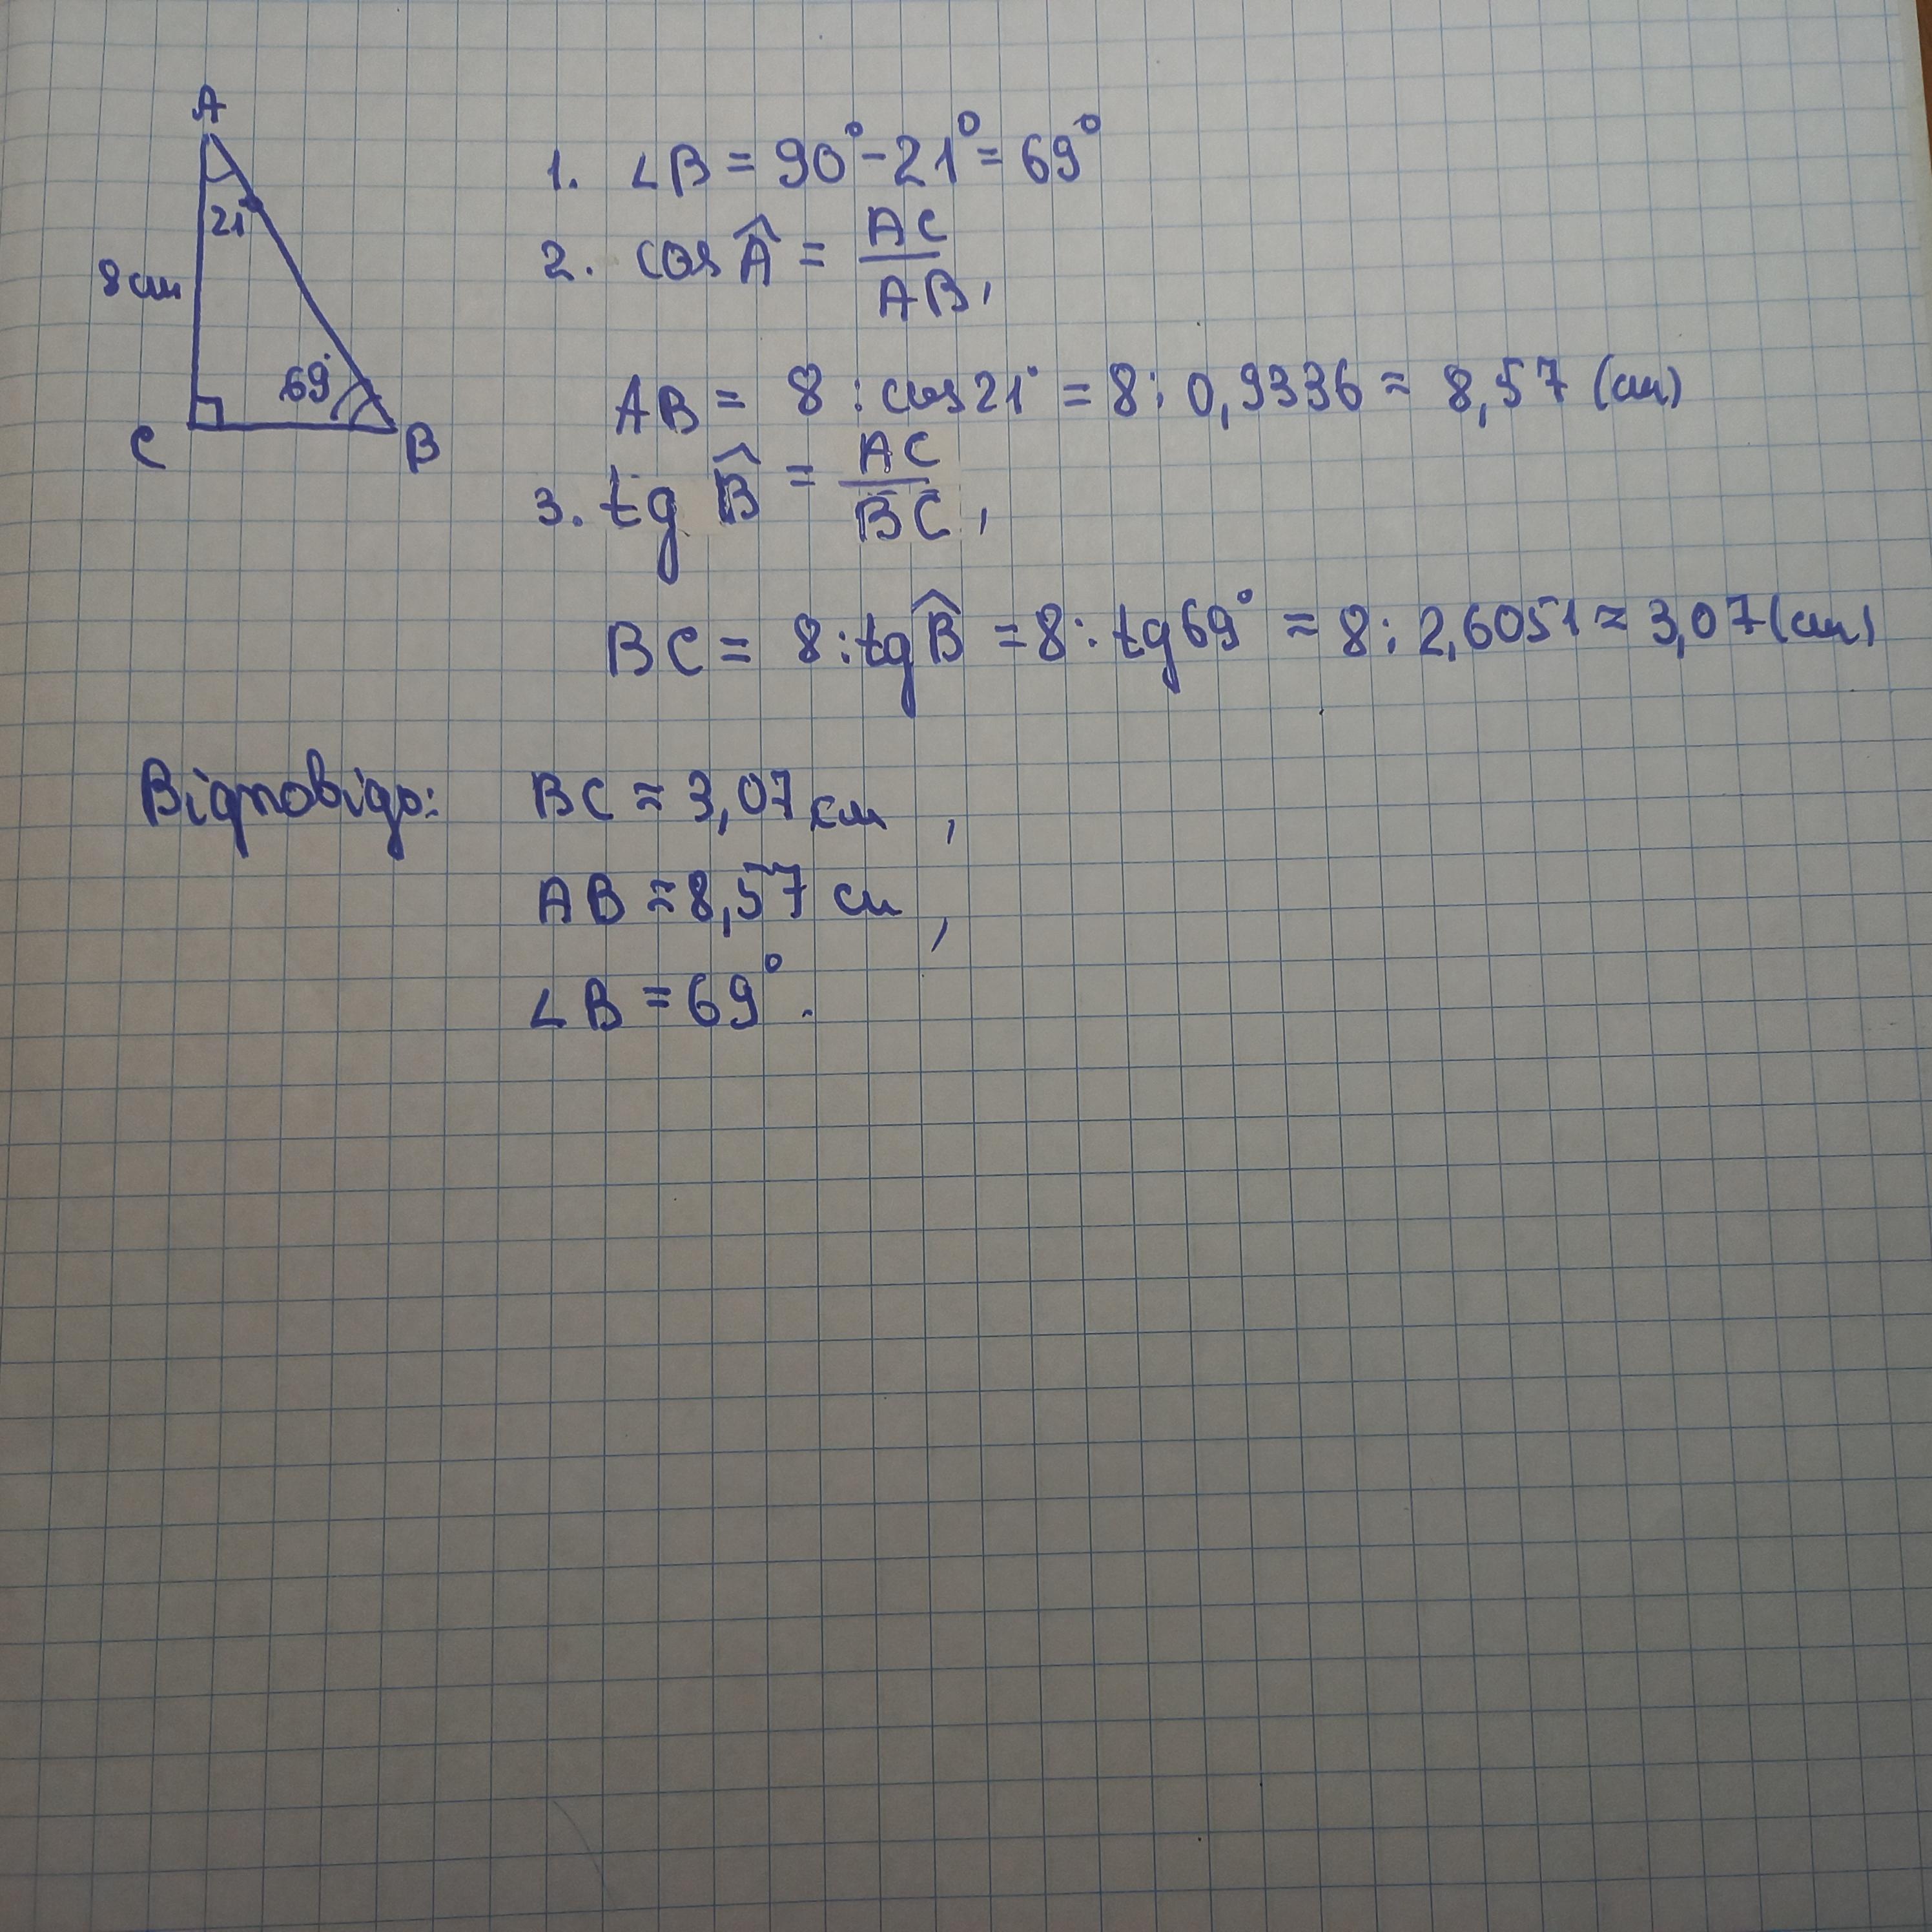 A
21°
8 см
69°
C
B
1. ∠B = 90° - 21° = 69°
2. cos Â = AC/AB,
AB = 8 : cos21° = 8 : 0,9336 ≈ 8,57 (см)
3. tg B̂ = AC/BC,
BC = 8 : tg B̂ = 8 : tg 69° ≈ 8 : 2,6051 ≈ 3,07 (см)
Відповідь: BC ≈ 3,07 см,
AB ≈ 8,57 см,
∠B = 69°.